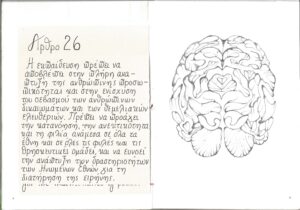 Άρθρο 26
Η εκπαίδευση πρέπει να
αποβλέπει στην πλήρη ανά-
πτυξη της ανθρώπινης προσω-
πικότητας και στην ενίσχυση
του σεβασμού των ανθρωπίνων
δικαιωμάτων και των θεμελιακών
ελευθεριών. Πρέπει να προάγει
την κατανόηση, την ανεκτικότητα
και τη φιλία ανάμεσα σε όλα τα
έθνη και σε όλες τις φυλές και τις
θρησκευτικές ομάδες, και να ευνοεί
την ανάπτυξη των δραστηριοτήτων
των Ηνωμένων Εθνών για τη
διατήρηση της ειρήνης.